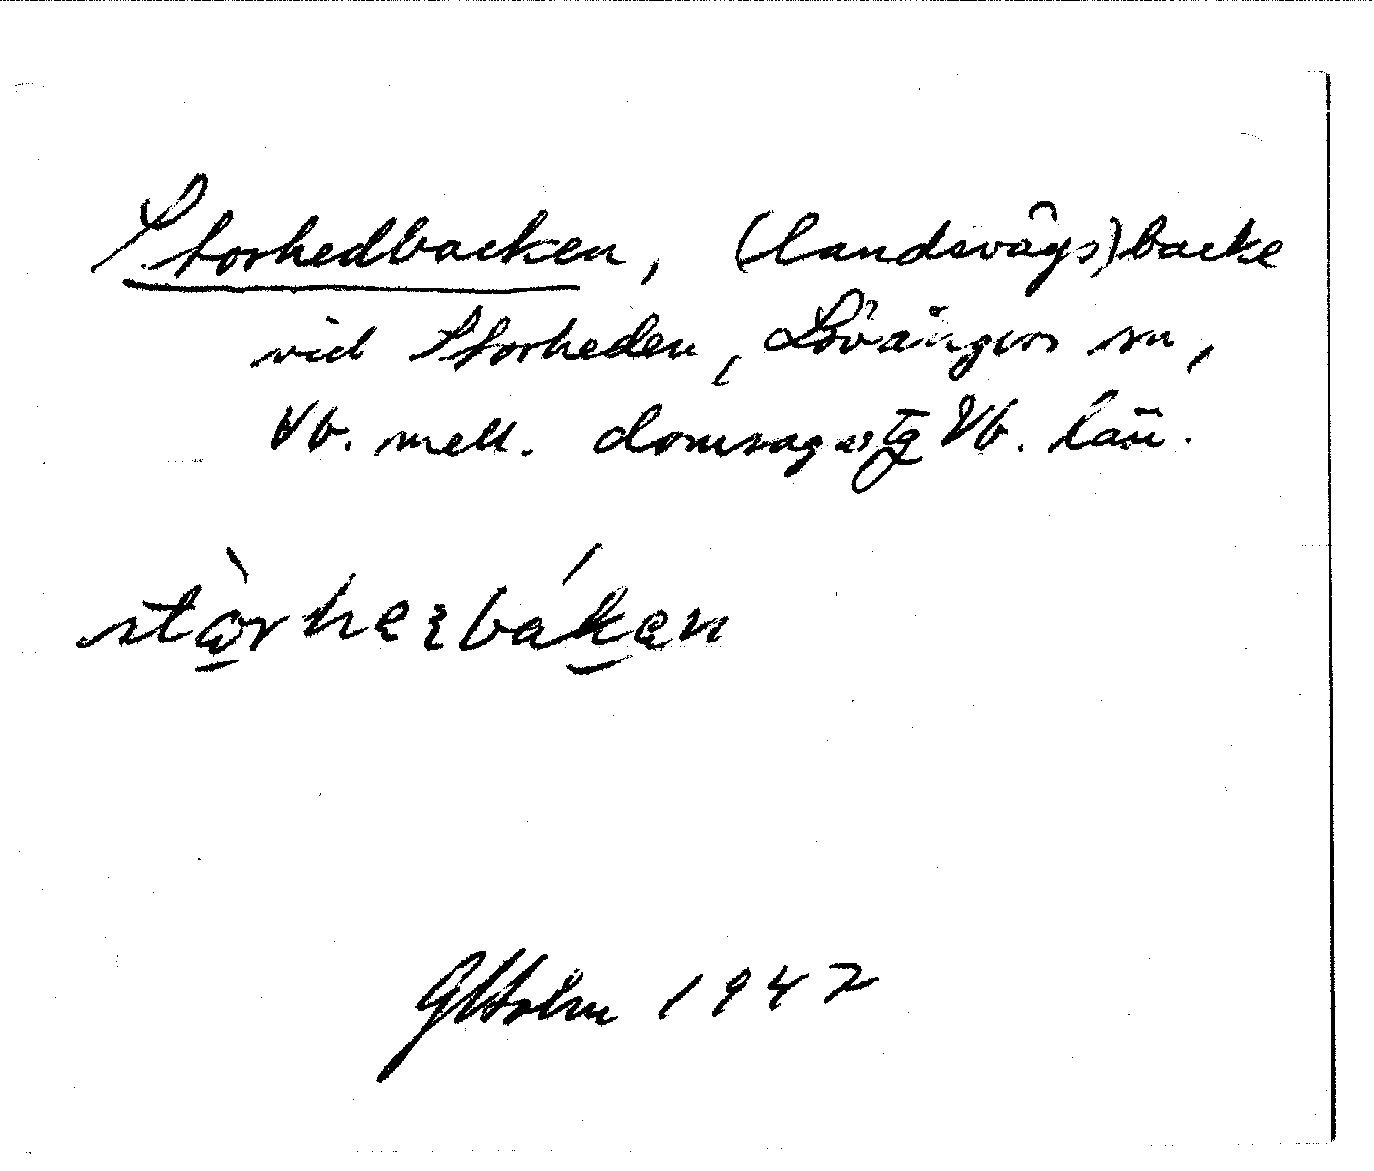 Storhedbacken, (landsvägs)backe
vid Storheden, Lövångers sn,
Vb. mell. domsagas tg Vb. län.
stòrherbáken
1947